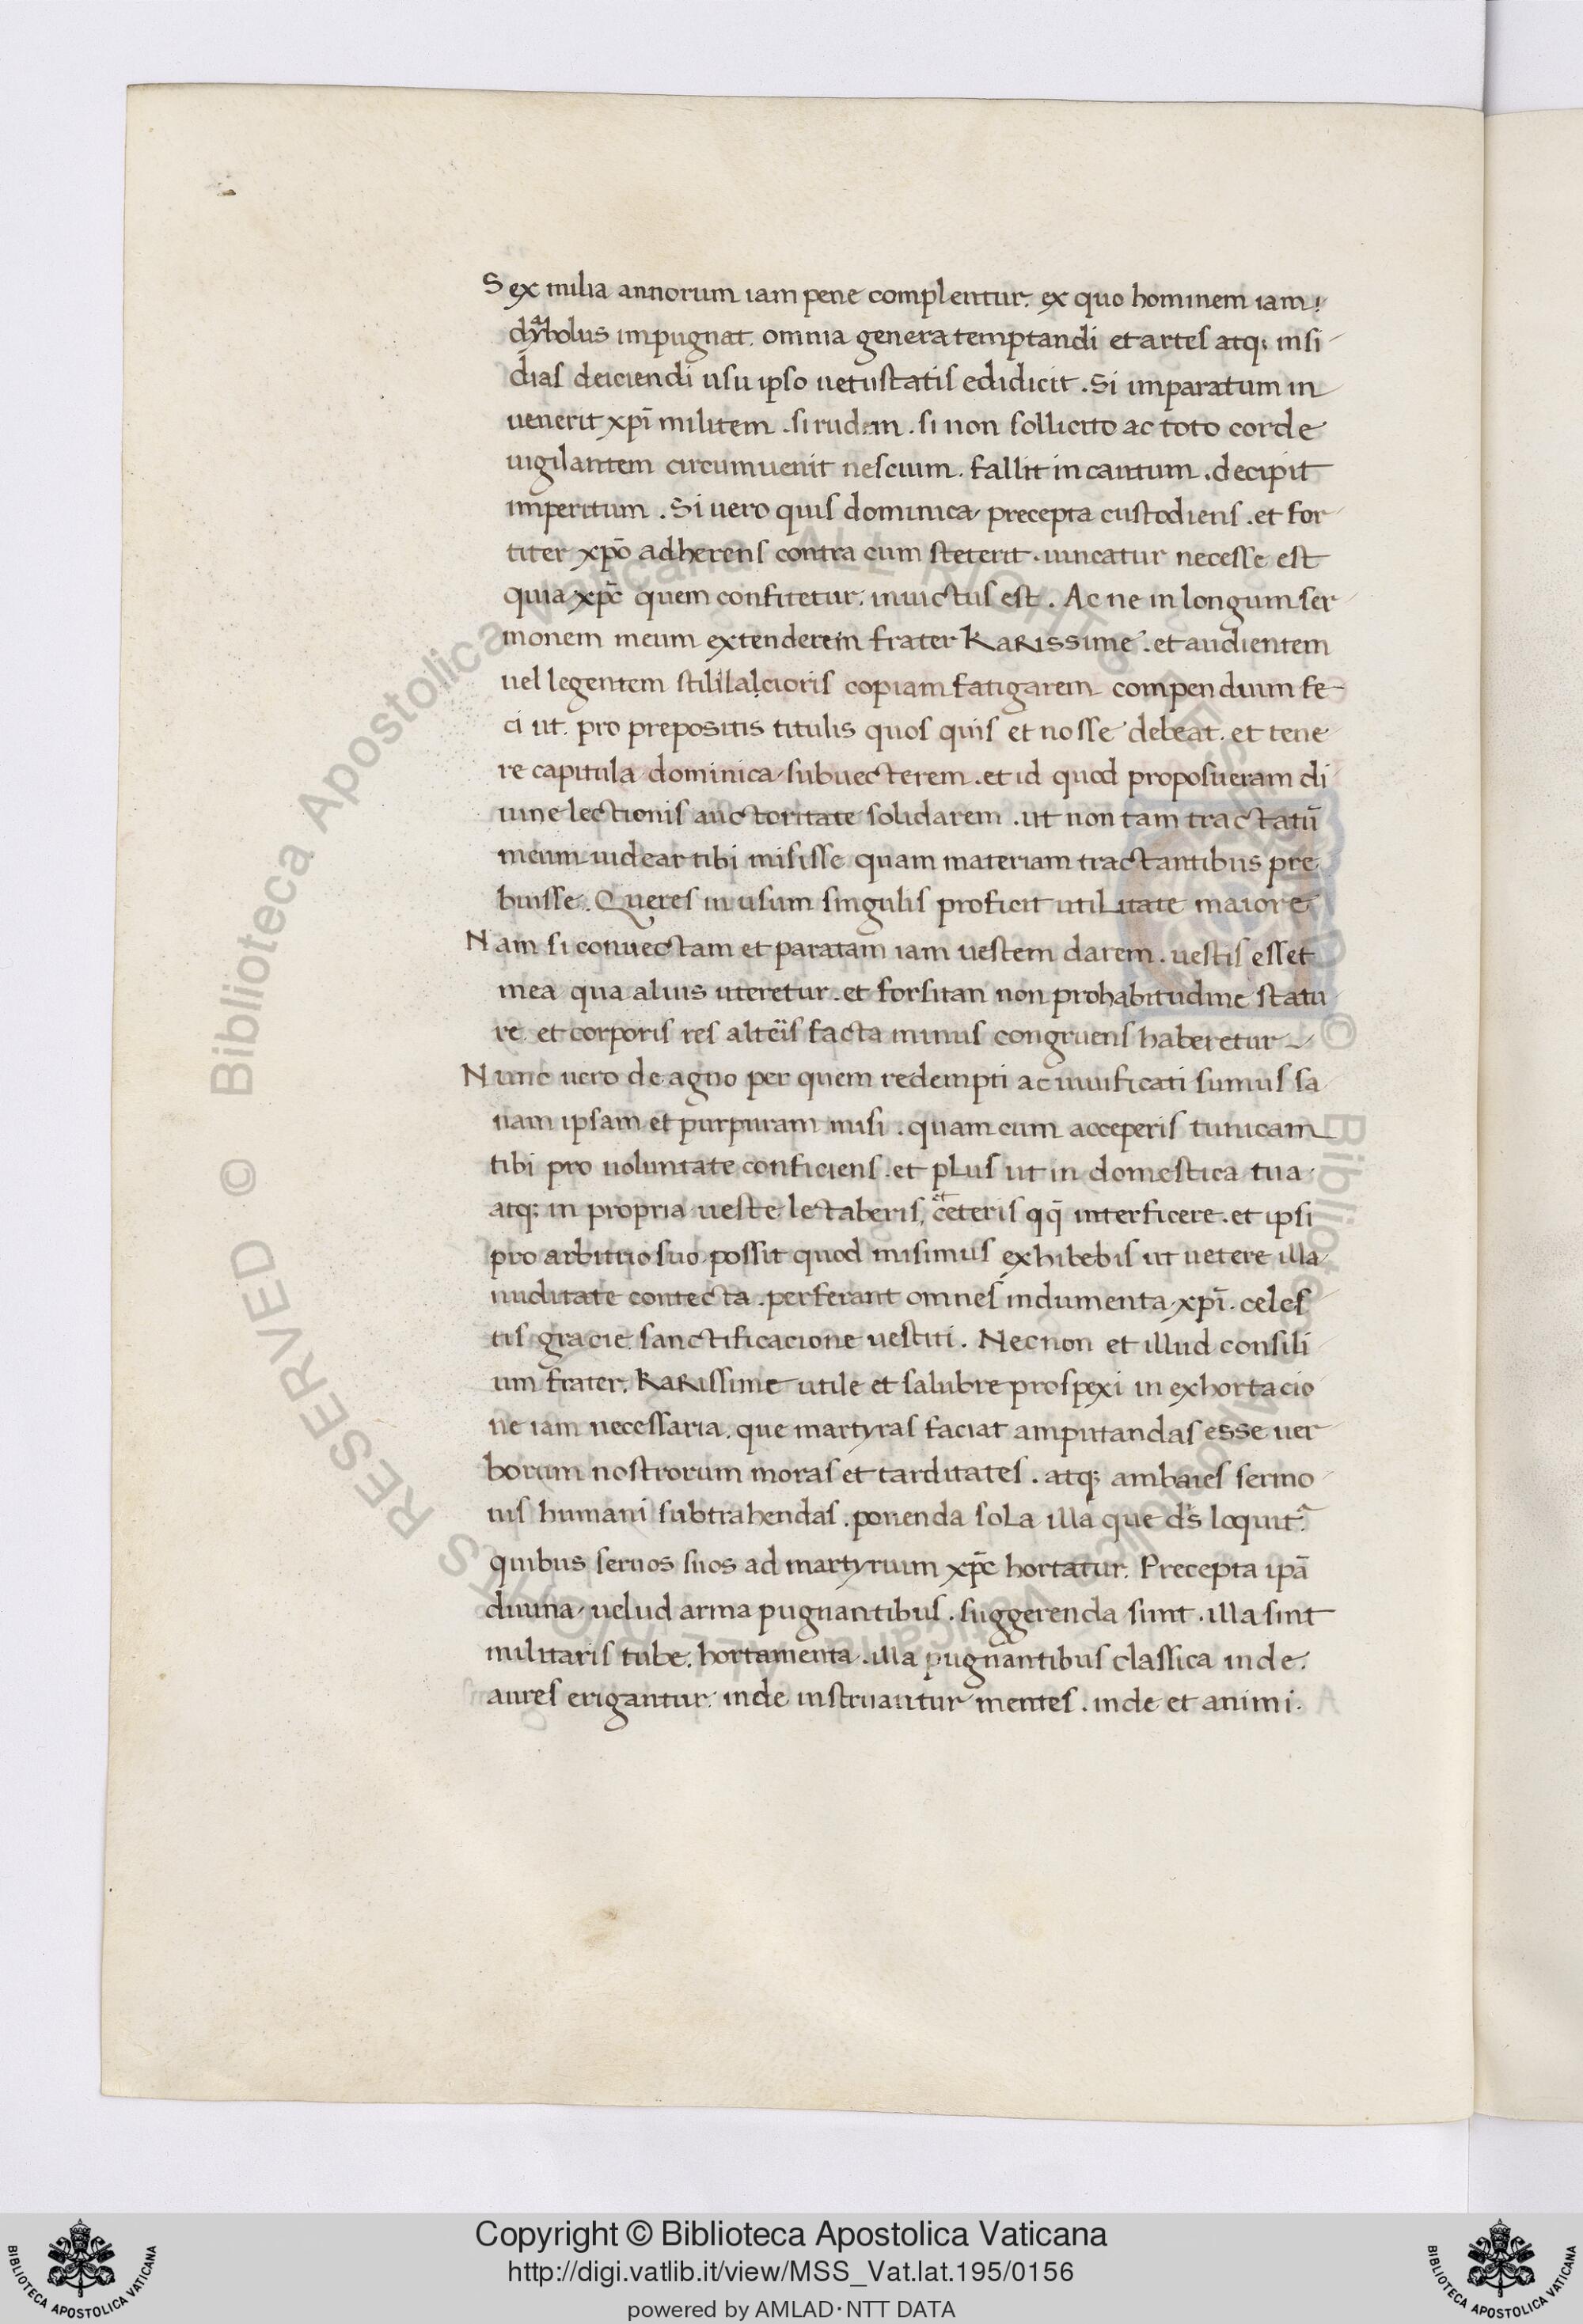 Sex milia annorum iam pene complentur. ex quo hominem iam
dyabolus impugnat. omnia genera temptandi et artes atq; insi
dias deiciendi usu ipso uetustatis edidicit. Si imparatum in
uenerit xpī militem. si rudem. si non sollicito ac toto corde
uigilantem circumuenit nescium. fallit incautum. decipit
imperitum. Si uero quis dominica precepta custodiens. et for
titer xpō adherens contra eum steterit. uincatur necesse est
quia xpc̄ quem confitetur. inuictus est. Ac ne in longum ser
monem meum extenderem frater Karissime. et audientem
uel legentem copiam fatigarem compendium fe
ci ut. pro prepositis titulis quos quis et nosse debeat. et tene
re capitula dominica subuecterem. et id quod proposueram di
uine lectionis auctoritate solidarem. ut non tam tractatū
meum uidear tibi misisse quam materiam tractantibus pre
buisse. Queres in usum singulis proficit utilitate maiore
Nam si conuectam et paratam iam uestem darem. uestis esset
mea qua alius uteretur. et forsitan non prohabitudine statu
re et corporis res facta minus congruens haberetur
Nunc uero de agno per quem redempti ac uiuificati sumus la
nam ipsam et purpuram misi. quam cum acceperis tunicam
tibi pro uoluntate conficiens. et plus ut in domestica tua
atq; in propria ueste letaberis, ceteris qq̄ interficere. et ipsi
pro arbitrio suo possit quod misimus exhibebis ut uetere illa
nuditate contecta. perferant omnes indumenta xpī. celes
tis gracie sanctificacione uestiti. Necnon et illud consili
um frater. Karissime utile et salubre prospexi in exhortacio
ne iam necessaria. que martyras faciat amputandas esse uer
borum nostrorum moras et tarditates. atq; ambaies sermo
nis humani subtrahendas. ponenda sola illa que ds̄ loquit.
quibus seruos suos ad martyrium xpc̄ hortatur. Precepta ipā
diuina uelud arma pugnantibus. suggerenda sunt. illa sint
militaris tube. hortamenta. illa pugnantibus classica inde.
aures erigantur. inde instruantur mentes. inde et animi.
© Biblioteca Apostolica Vaticana ALL RIGHTS RESERVED
Copyright © Biblioteca Apostolica Vaticana
http://digi.vatlib.it/view/MSS_Vat.lat.195/0156
powered by AMLAD·NTT DATA
BIBLIOTECA APOSTOLICA VATICANA
BIBLIOTECA APOSTOLICA VATICANA